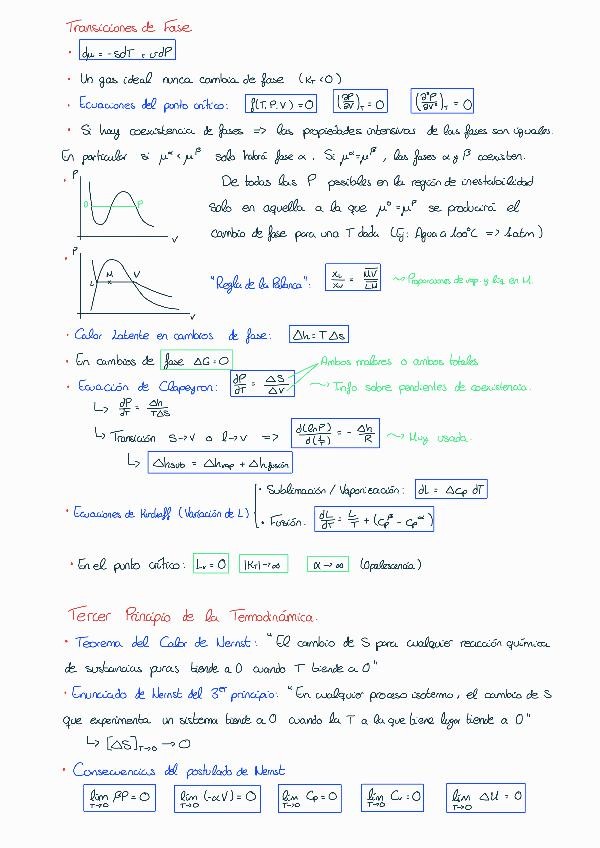 Transiciones de Fase
• dμ = -sdT + vdP
• Un gas ideal nunca cambia de fase (K_T < 0)
• Ecuaciones del punto crítico: f(T,P,V) = 0 (∂P/∂V)_T = 0 (∂²P/∂V²)_T = 0
• Si hay coexistencia de fases => las propiedades intensivas de las fases son iguales.
En particular si μ^α < μ^β solo habrá fase α. Si μ^α = μ^β, las fases α y β coexisten.
P
• De todas las P posibles en la región de inestabilidad
O P
solo en aquella a la que μ^O = μ^P se producirá el
cambio de fase para una T dada (Ej: Agua a 100ºC => 1atm)
V
P
• L M V
"Regla de la Palanca": x_L/x_V = MV/LM ~> Proporciones de vap. y liq. en M.
V
• Calor Latente en cambios de fase: Δh = TΔs
• En cambios de fase ΔG = 0
Ambos molares o ambos totales
• Ecuación de Clapeyron: dP/dT = ΔS/ΔV ~> Info sobre pendientes de coexistencia.
↳ dP/dT = Δh/TΔs
↳ Transición s→v o l→v => d(lnP)/d(1/T) = - Δh/R ~> Muy usada.
↳ Δh_sub = Δh_vap + Δh_fusión
• Ecuaciones de Kirchoff (Variación de L)
• Sublimación / Vaporización: dL = Δc_p dT
• Fusión: dL/dT = L/T + (c_p^β - c_p^α)
• En el punto crítico: L_v = 0 |K_T| → ∞ α → ∞ (Opalescencia)
Tercer Principio de la Termodinámica.
• Teorema del Calor de Nernst: "El cambio de S para cualquier reacción química
de sustancias puras tiende a 0 cuando T tiende a 0"
• Enunciado de Nernst del 3er principio: "En cualquier proceso isotermo, el cambio de S
que experimenta un sistema tiende a 0 cuando la T a la que tiene lugar tiende a 0"
↳ [ΔS]_T→0 → 0
• Consecuencias del postulado de Nernst
lim T→0 βP = 0 lim T→0 (-αV) = 0 lim T→0 C_P = 0 lim T→0 C_V = 0 lim T→0 ΔU = 0